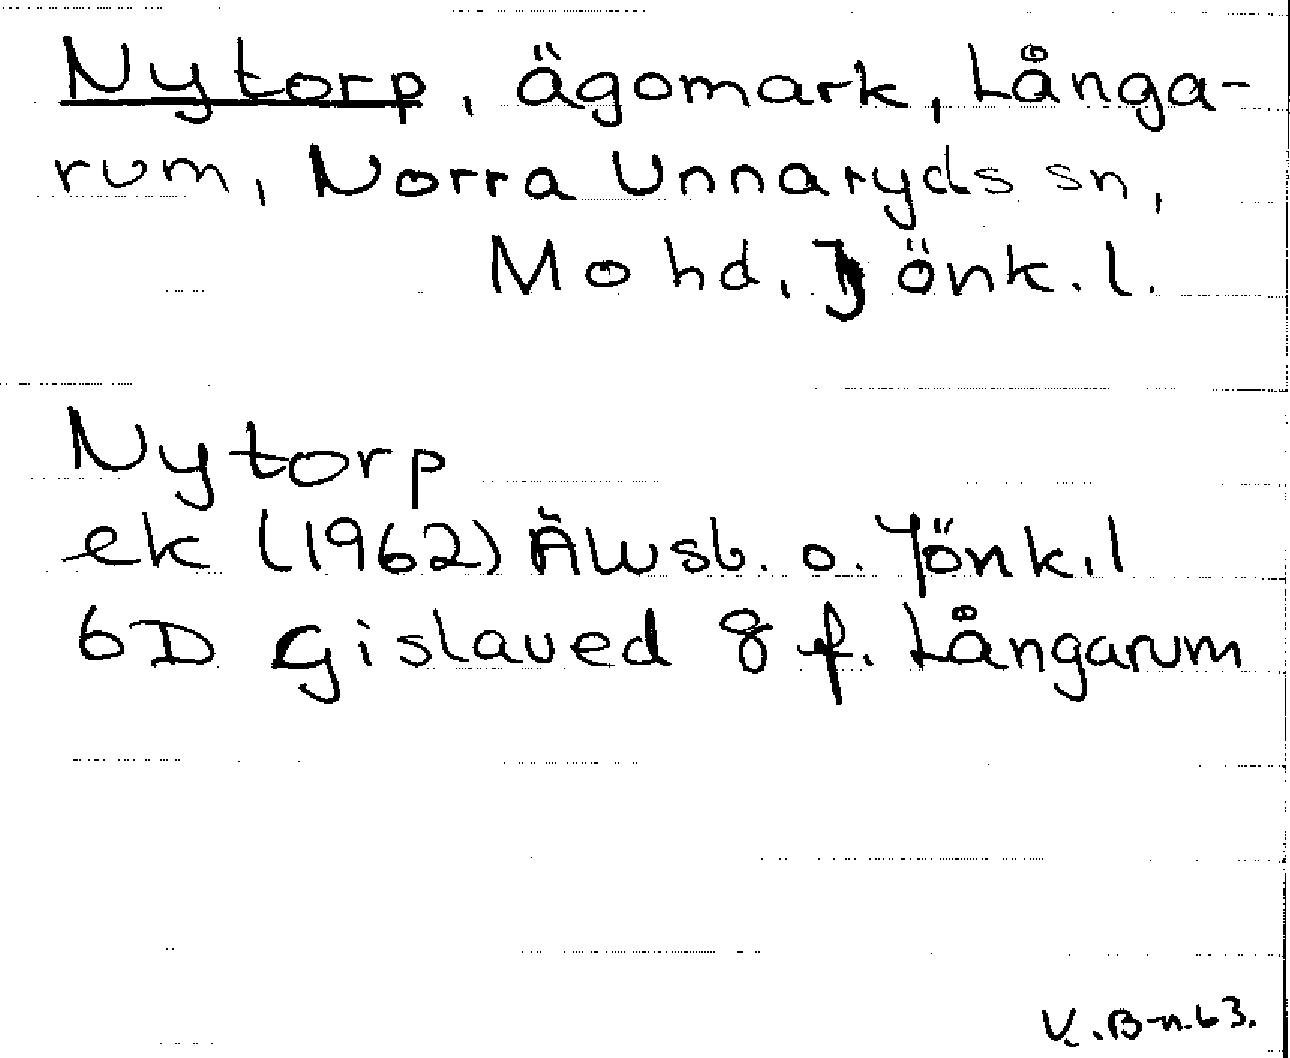 Nytorp, ägomark, Långa-
rum, Norra Unnaryds sn,
Mo hd, Jönk.l.
Nytorp
ek (1962) Älvsb. o. Jönk.l
6D Gislaved 8 f. Långarum
V.B-n.63.